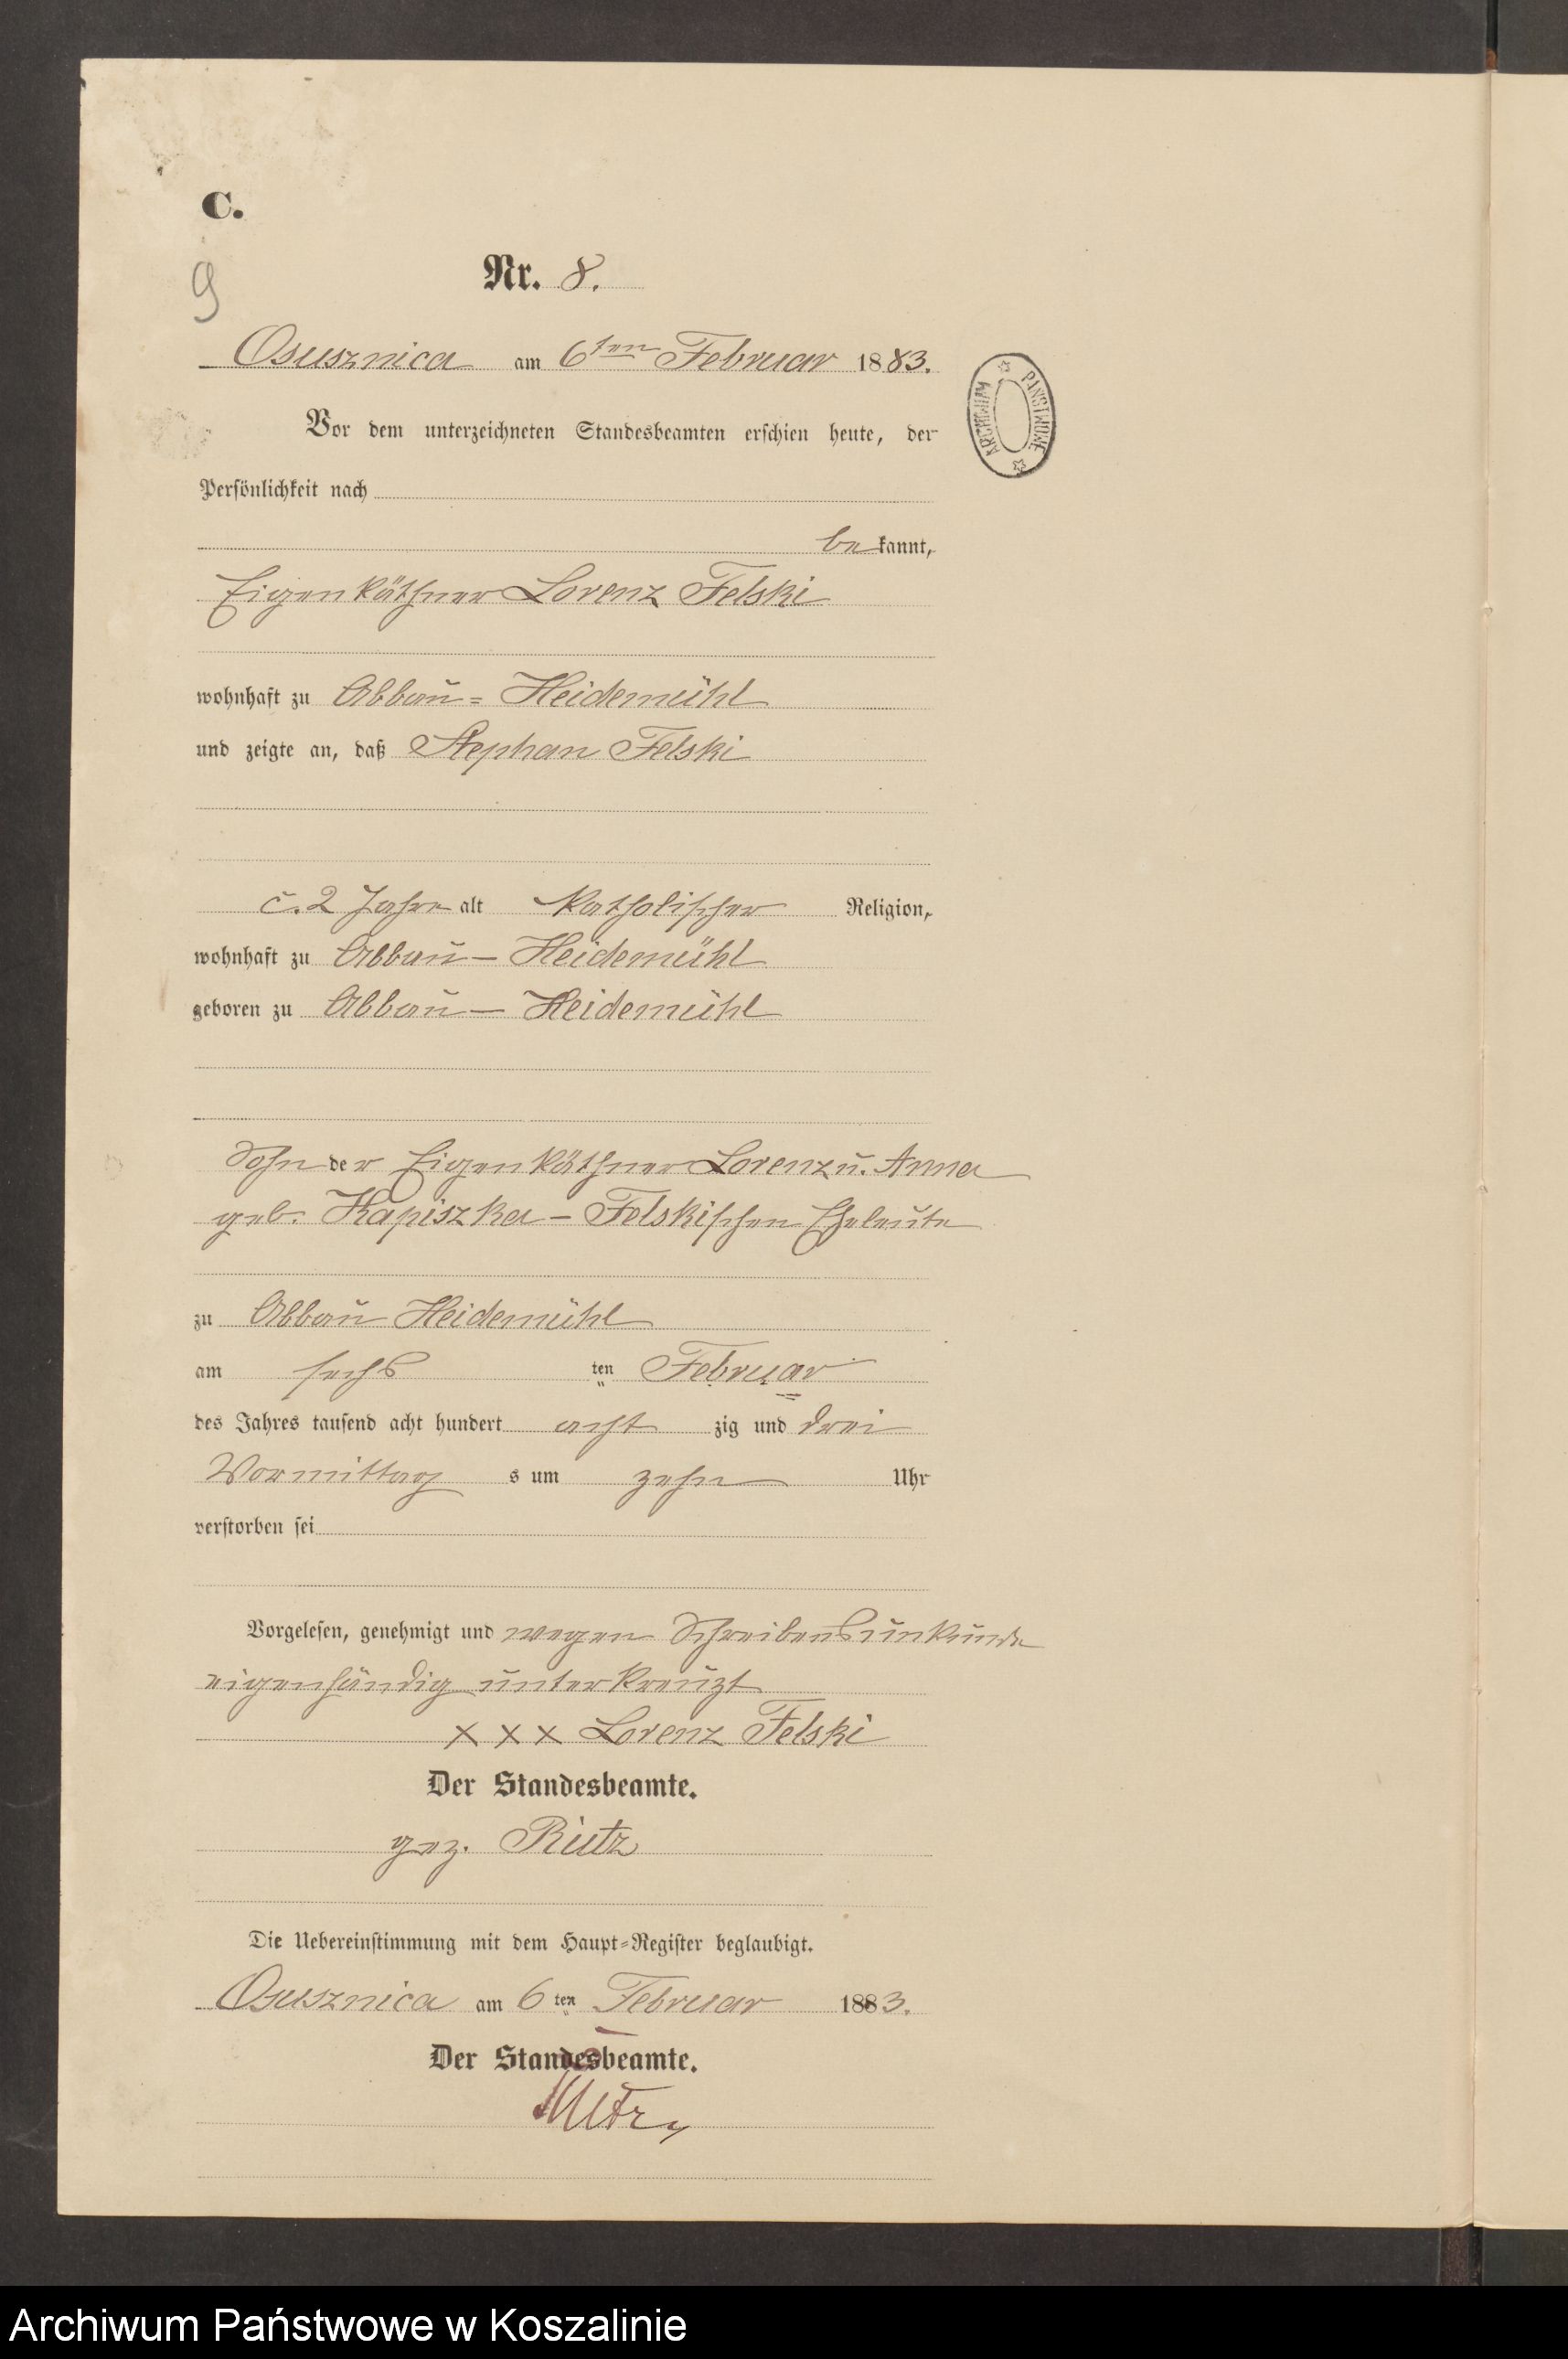 C.
9
Nr. 8.
Osusznica am 6ten Februar 1883.
ARCHIWUM PAŃSTWOWE
Vor dem unterzeichneten Standesbeamten erschien heute, der
Persönlichkeit nach
bekannt,
Eigenkäthner Lorenz Felski
wohnhaft zu Abbau=Heidemühl
und zeigte an, daß Stephan Felski
c. 2 Jahre alt katholischer Religion,
wohnhaft zu Abbau–Heidemühl
geboren zu Abbau–Heidemühl
Sohn der Eigenkäthner Lorenz u. Anna
geb. Kapiszka–Felskischen Eheleute
zu Abbau Heidemühl
am sechs ten Februar
des Jahres tausend acht hundert acht zig und drei
Vormittag s um zehn Uhr
verstorben sei
Vorgelesen, genehmigt und wegen Schreibensunkunde
eigenhändig unterkreuzt
x x x Lorenz Felski
Der Standesbeamte.
gez. Rutz
Die Uebereinstimmung mit dem Haupt-Register beglaubigt.
Osusznica am 6ten Februar 1883.
Der Standesbeamte.
Rutz
Archiwum Państwowe w Koszalinie